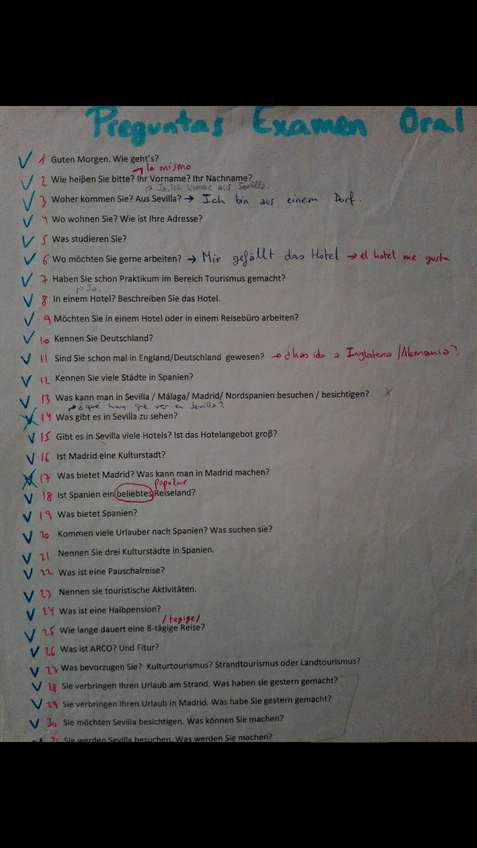 Preguntas Examen Oral
1 Guten Morgen. Wie geht's?
lo mismo
2 Wie heißen Sie bitte? Ihr Vorname? Ihr Nachname?
Ja, ich komme aus Sevilla.
3 Woher kommen Sie? Aus Sevilla? → Ich bin aus einem Dorf.
4 Wo wohnen Sie? Wie ist Ihre Adresse?
5 Was studieren Sie?
6 Wo möchten Sie gerne arbeiten? → Mir gefällt das Hotel → el hotel me gusta
7 Haben Sie schon Praktikum im Bereich Tourismus gemacht?
Ja.
8 In einem Hotel? Beschreiben Sie das Hotel.
9 Möchten Sie in einem Hotel oder in einem Reisebüro arbeiten?
10 Kennen Sie Deutschland?
11 Sind Sie schon mal in England/Deutschland gewesen? → ¿has ido a Inglaterra/Alemania?
12 Kennen Sie viele Städte in Spanien?
13 Was kann man in Sevilla / Málaga/ Madrid/ Nordspanien besuchen / besichtigen? x
→ ¿qué hay que ver en Sevilla?
14 Was gibt es in Sevilla zu sehen?
15 Gibt es in Sevilla viele Hotels? Ist das Hotelangebot groß?
16 Ist Madrid eine Kulturstadt?
17 Was bietet Madrid? Was kann man in Madrid machen?
popular
18 Ist Spanien ein beliebtes Reiseland?
19 Was bietet Spanien?
20 Kommen viele Urlauber nach Spanien? Was suchen sie?
21 Nennen Sie drei Kulturstädte in Spanien.
22 Was ist eine Pauschalreise?
23 Nennen sie touristische Aktivitäten.
24 Was ist eine Halbpension?
/tegige/
25 Wie lange dauert eine 8-tägige Reise?
26 Was ist ARCO? Und Fitur?
27 Was bevorzugen Sie? Kulturtourismus? Strandtourismus oder Landtourismus?
28 Sie verbringen Ihren Urlaub am Strand. Was haben sie gestern gemacht?
29 Sie verbringen Ihren Urlaub in Madrid. Was habe Sie gestern gemacht?
30 Sie möchten Sevilla besichtigen. Was können Sie machen?
31 Sie werden Sevilla besuchen. Was werden Sie machen?